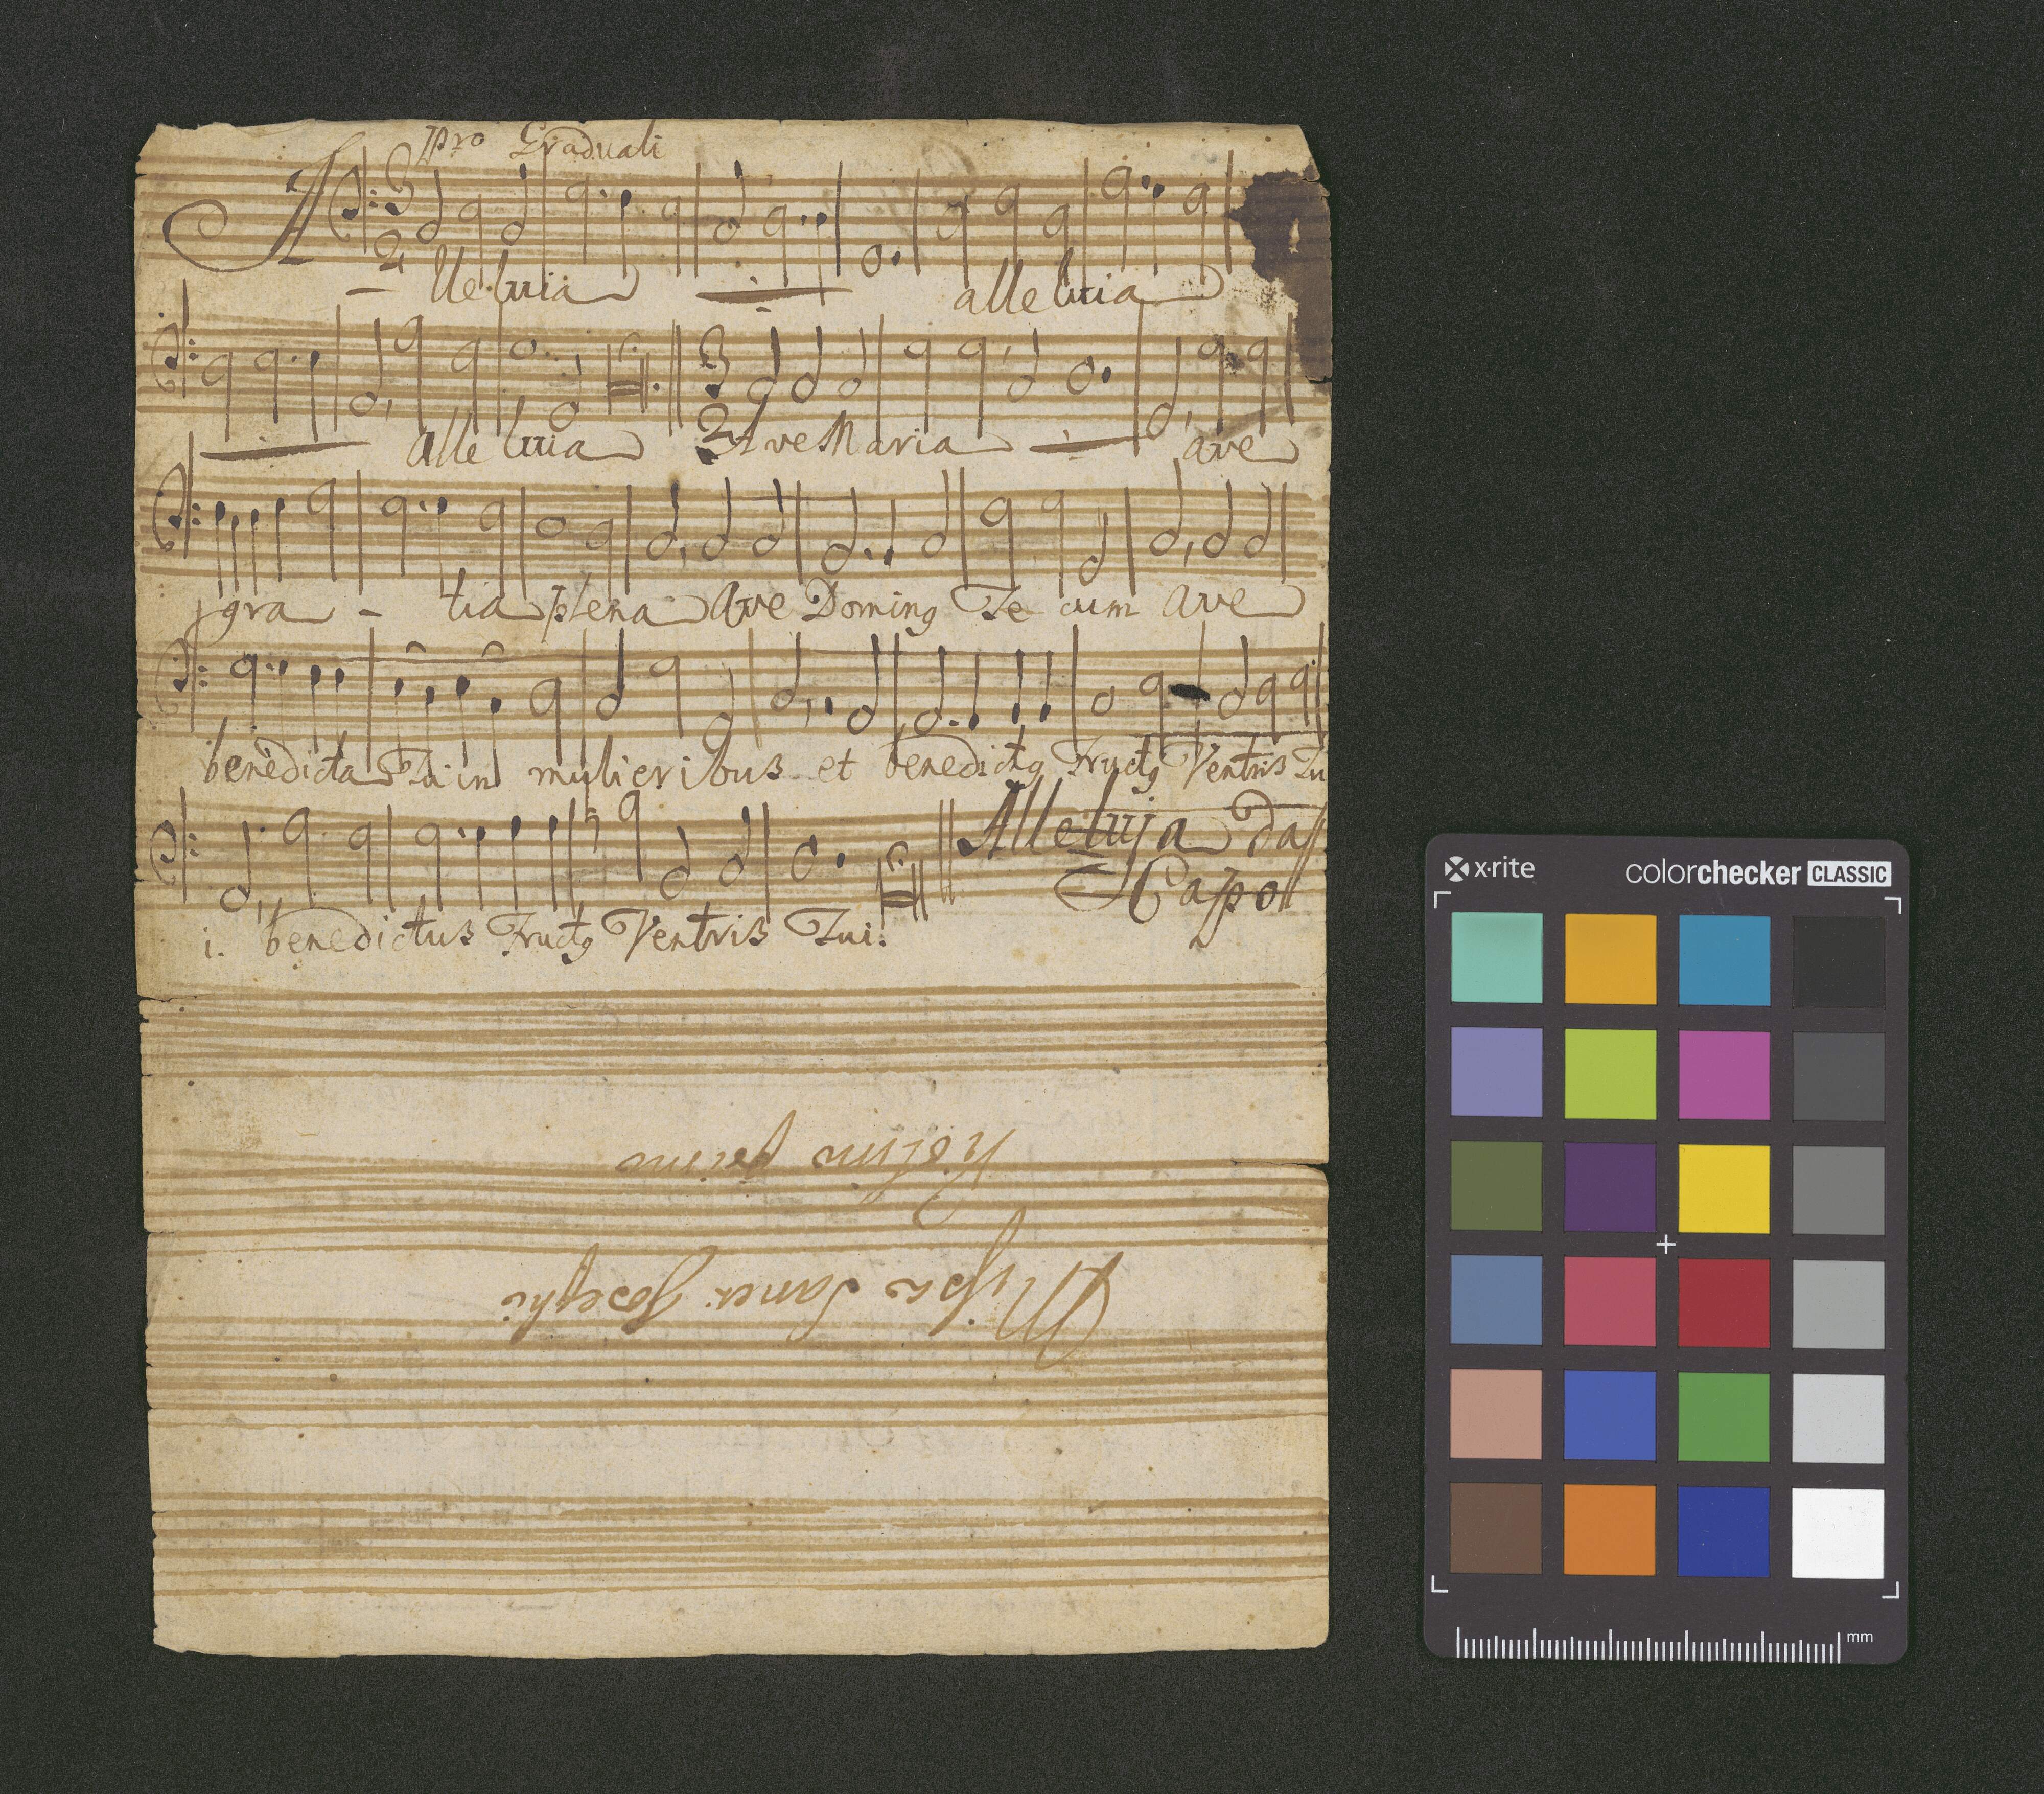 pro Graduali
A - lleluia alleluia
alleluia Ave Maria ave
gra - tia plena ave Dominꝰ Te cum ave
benedicta Tu in mulieribus et benedictꝰ Fructꝰ Ventris Tu
Alleluja da
Capo
i. benedictus Fructꝰ Ventris Tui.
Missa Sancti Josephi
x·rite colorchecker CLASSIC
mm